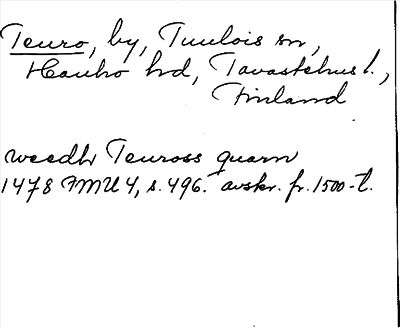 Teuro, by, Tuulois sn,
Hauho hd, Tavastehus l.,
Finland
weedh Teuross quarn
1478 FMU 4, s. 496. avskr. fr. 1500-t.